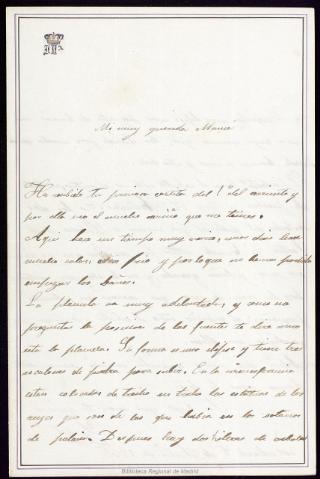 Mi muy querida Mamá
He recibido tu preciosa cartita del 1º del corriente y
por ella veo el mucho cariño que me tienes.
Aqui hace un tiempo muy vario, unos dias hace
mucho calor, otros frio y por lo que no hemos podido
empezar los baños.
La plazuela va muy adelantada, y como me
preguntas la posicion de las fuentes te dire como
está la plazuela. Su forma es una elipse y tiene tres
escalones de piedra para subir. En la circunferencia
estan colocados de trecho en trecho las estatuas de los
reyes que son de las que habia en los sotanos
de palacio. Despues hay dos hileras de arboles
Biblioteca Regional de Madrid